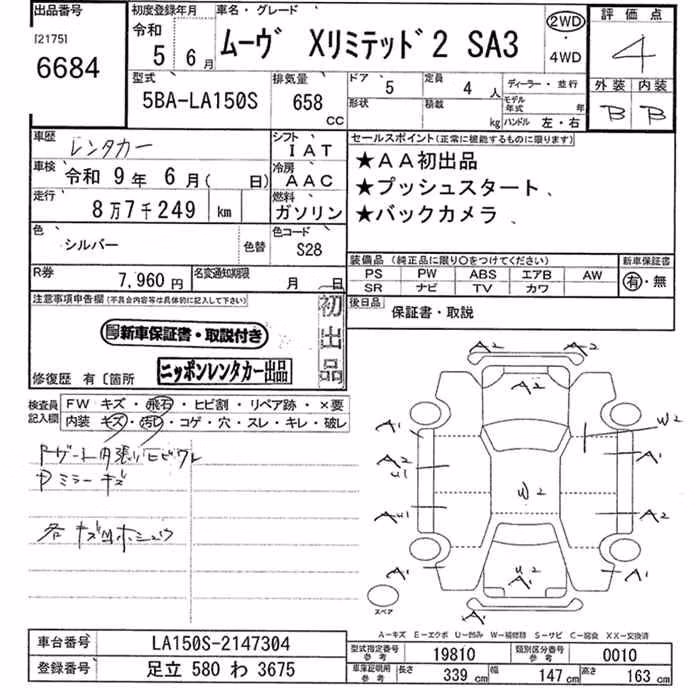 出品番号
[2175]
6684
初度登録年月
令和
5 6月
車名・グレード
ムーヴ XリミテッドⅡ SA3
2WD
・
4WD
評価点
4
外装 内装
B B
型式
5BA-LA150S
排気量
658
cc
ドア
5
定員
4 人
形状
積載
kg
ディーラー・並行
モデル年式 年
ハンドル 左・右
車歴
レンタカー
シフト
IAT
車検
令和 9年 6月( 日)
冷房
AAC
走行
8万7千249 km
燃料
ガソリン
色
シルバー
色替
色コード
S28
セールスポイント(正常に機能するものに限ります)
★AA初出品
★プッシュスタート
★バックカメラ
R券
7,960円
名変通知期限
月 日
装備品(純正品に限り○をつけてください)
PS PW ABS エアB AW
SR ナビ TV カワ
新車保証書
有・無
注意事項申告欄(不具合内容等は具体的に記入して下さい)
初出品
後日品
保証書・取説
新車保証書・取説付き
ニッポンレンタカー出品
修復歴 有〔箇所
検査員記入欄
FW キズ・飛石・ヒビ割・リペア跡・×要
内装 キズ・汚レ・コゲ・穴・スレ・キレ・破レ
ミラー キズ
各 キズ凹
A2 A2
A2
A1 W2
A2 U1 A1
W2
AU1 A2
A1 U2 A1 A1
A1
スペア
A-キズ E-エクボ U-凹み W-補修跡 S-サビ C-腐食 XX-交換済
車台番号
LA150S-2147304
登録番号
足立 580 わ 3675
型式指定番号
参考
19810
類別区分番号
参考
0010
車庫証明用
参考
長さ 339 cm 幅 147 cm 高さ 163 cm